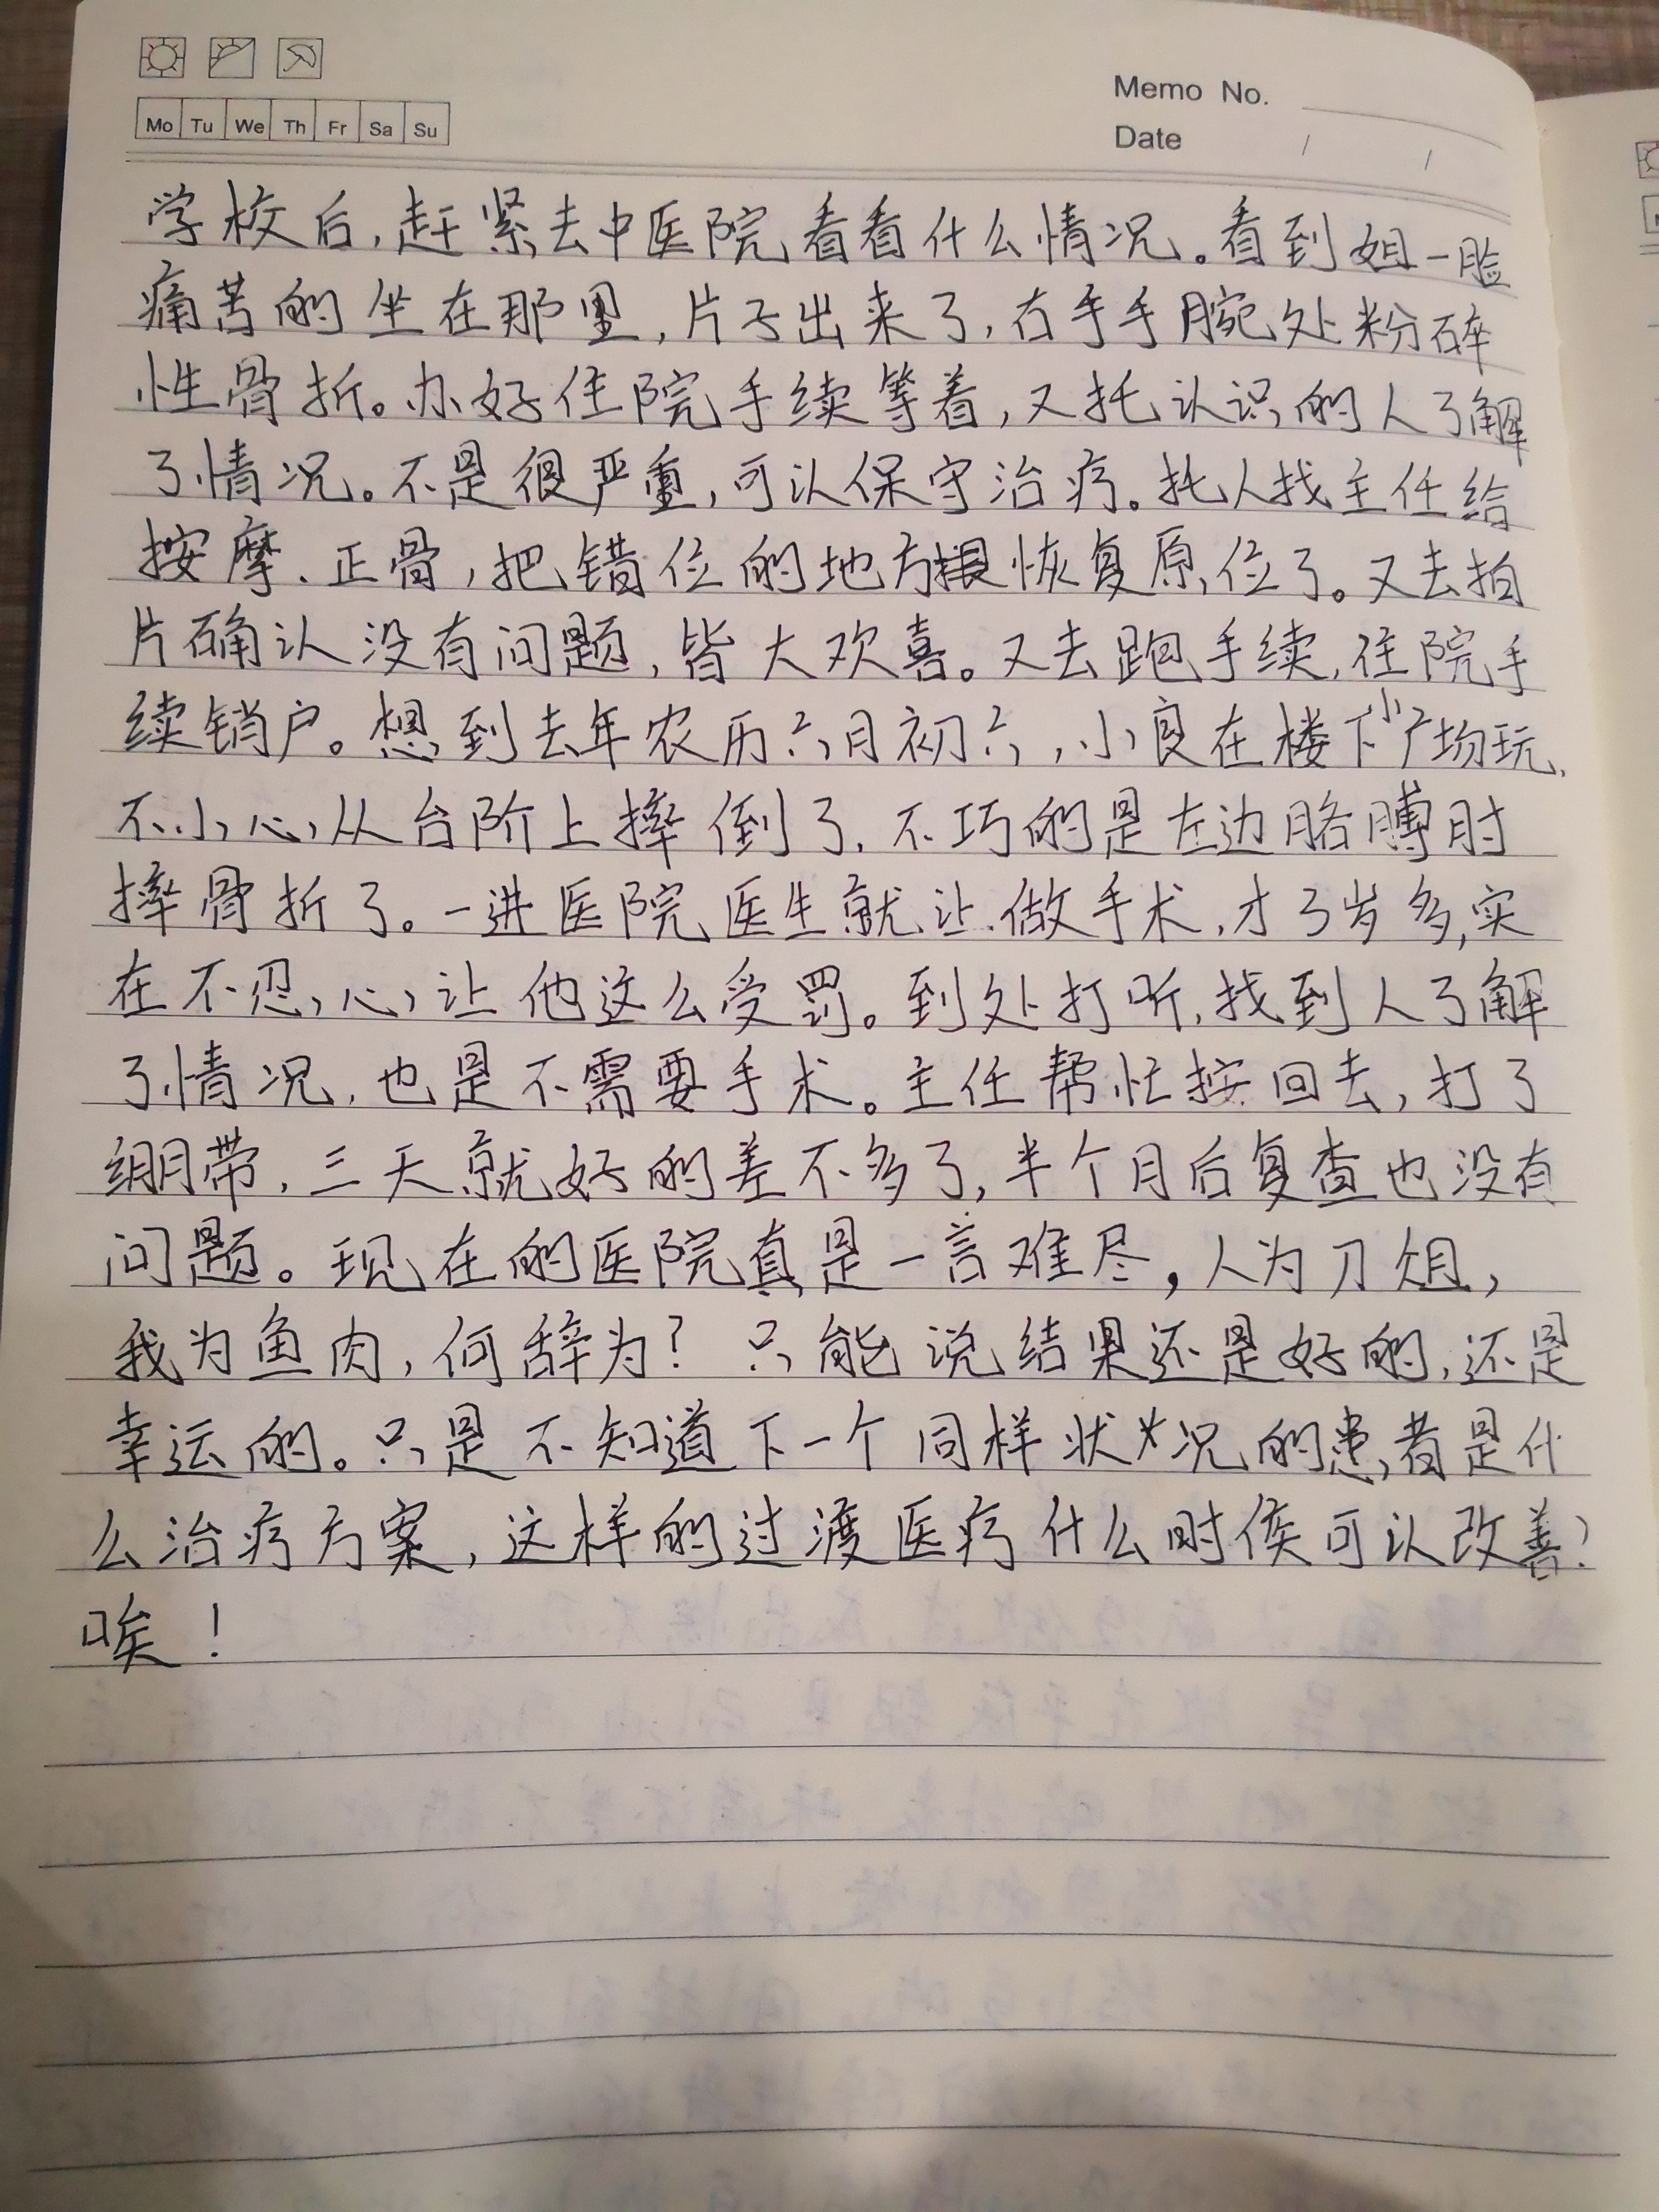 Memo No.
Mo Tu We Th Fr Sa Su
Date / /
学校后,赶紧去中医院看看什么情况。看到姐一脸
痛苦的坐在那里,片子出来了,右手手腕处粉碎
性骨折。办好住院手续等着,又托认识的人了解
了情况。不是很严重,可以保守治疗。托人找主任给
按摩、正骨,把错位的地方恢复原位了。又去拍
片确认没有问题,皆大欢喜。又去跑手续,住院手
续销户。想到去年农历六月初六,小良在楼下小广场玩,
不小心从台阶上摔倒了,不巧的是左边胳膊肘
摔骨折了。一进医院医生就让做手术,才3岁多,实
在不忍心让他这么受罚。到处打听,找到人了解
了情况,也是不需要手术。主任帮忙按回去,打了
绷带,三天就好的差不多了,半个月后复查也没有
问题。现在的医院真是一言难尽,人为刀俎,
我为鱼肉,何辞为?只能说结果还是好的,还是
幸运的。只是不知道下一个同样状况的患者是什
么治疗方案,这样的过渡医疗什么时侯可以改善?
唉!